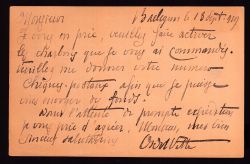 Monsieur
le 13 Sept
Je vous en prie, veuillez faire activer
le charbons que je vous ai commandés.
Veuillez me donner votre numéro
chèques-postaux afin que je puisse
vous envoyer de fonds.
Dans l'attente de prompte expédition
je vous prie d'agréer, Monsieur, mes
sincères salutations